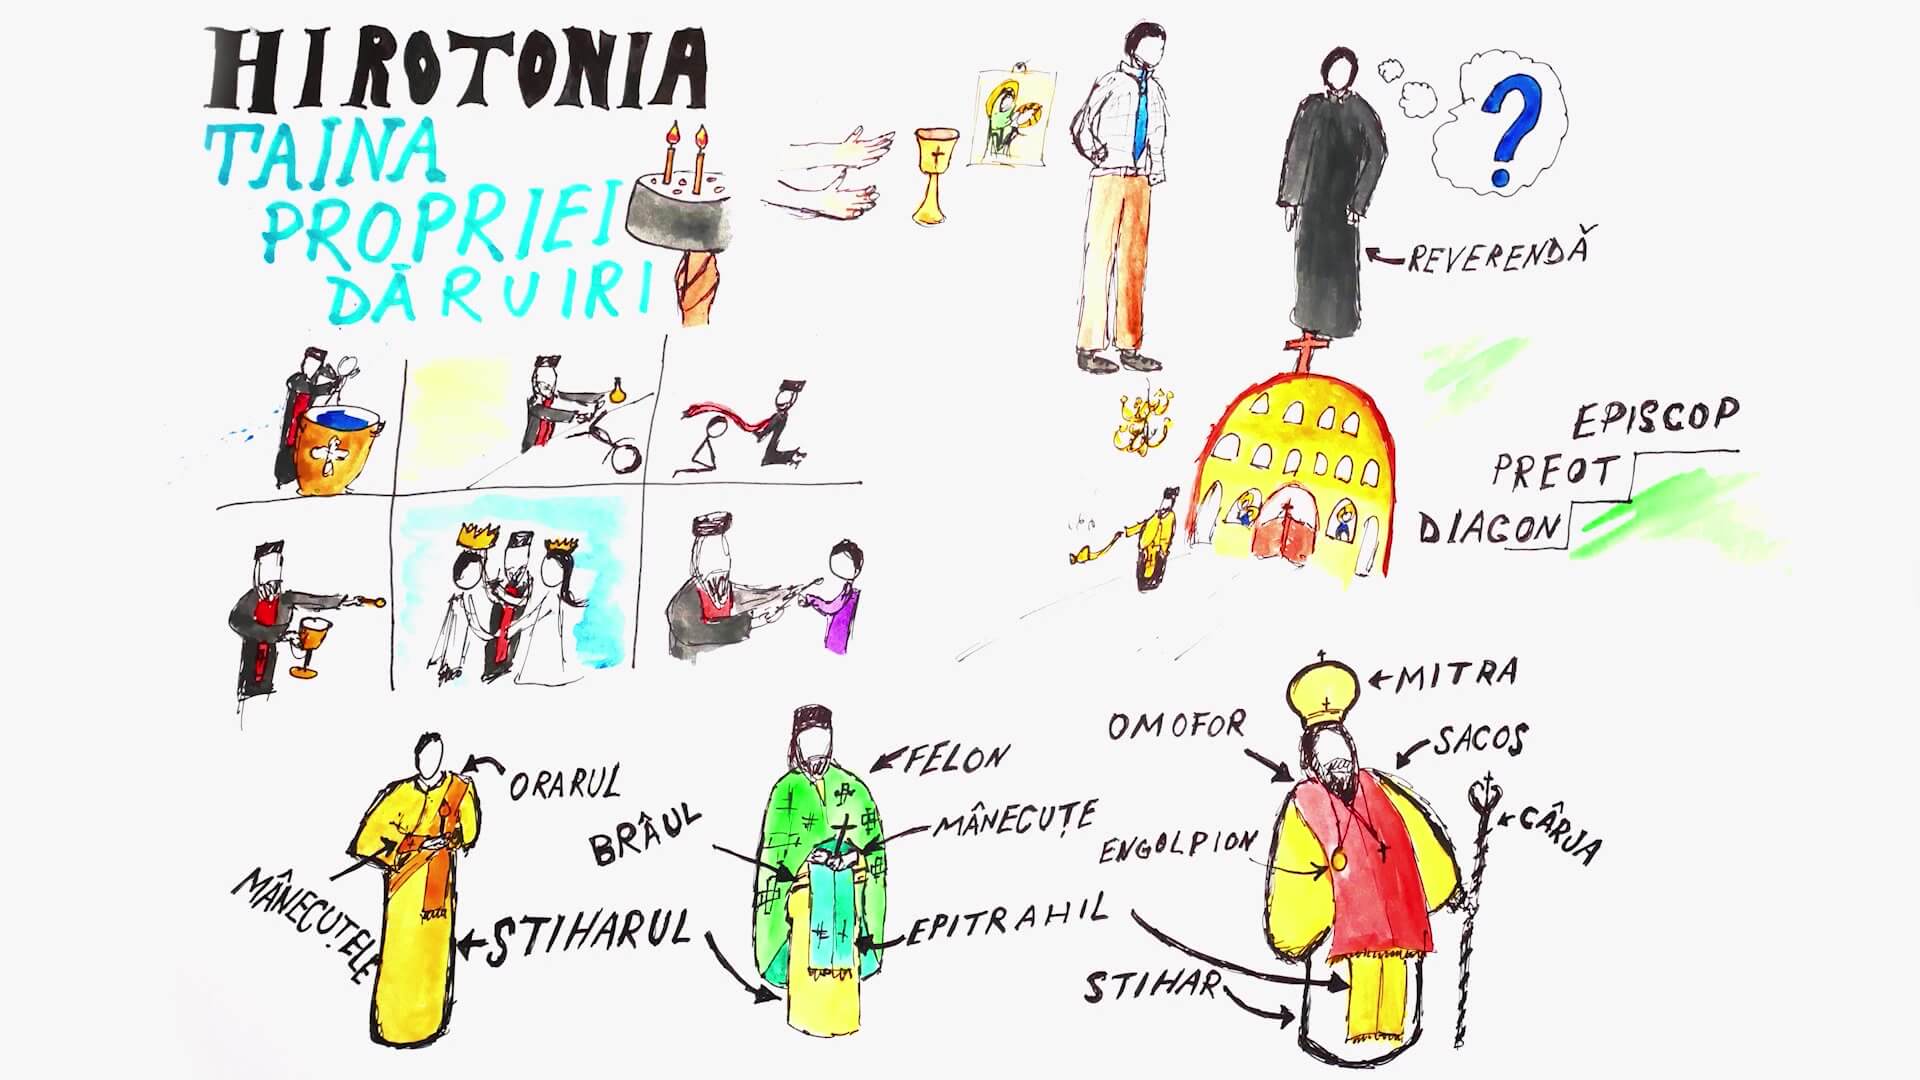 HIROTONIA
TAINA
PROPRIEI
DĂRUIRI
REVERENDĂ
EPISCOP
PREOT
DIACON
ORARUL
MÂNECUȚELE
STIHARUL
FELON
BRÂUL
MÂNECUȚE
EPITRAHIL
MITRA
OMOFOR
SACOS
CÂRJA
ENGOLPION
STIHAR
?